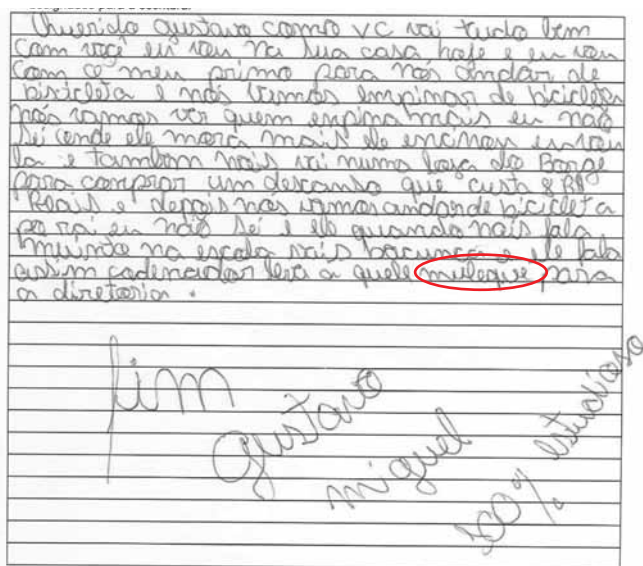 designados para a escritura.
Querido gustavo como vc vai tudo bem
com você eu vou na sua casa hoje e eu vou
com o meu primo para nós andar de
bisicleta e nós vamos empinar de bicicleta
nós vamos ver quem empina mais eu não
sei onde ele mora mais ele encinou eu vou
la e tambem nois vai numa loja do Borge
para comprar um descanso que custa 8 R$
Reais e depois nós vamos andar de bicicleta
eu não sei e ele quando nois fala
muinto na escola nois bacunça e ele fala
assim cadenador leva a quele muleque para
a diretoria.
fim
gustavo
miguel
100% estudioso